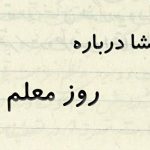 شا درباره
روز معلم